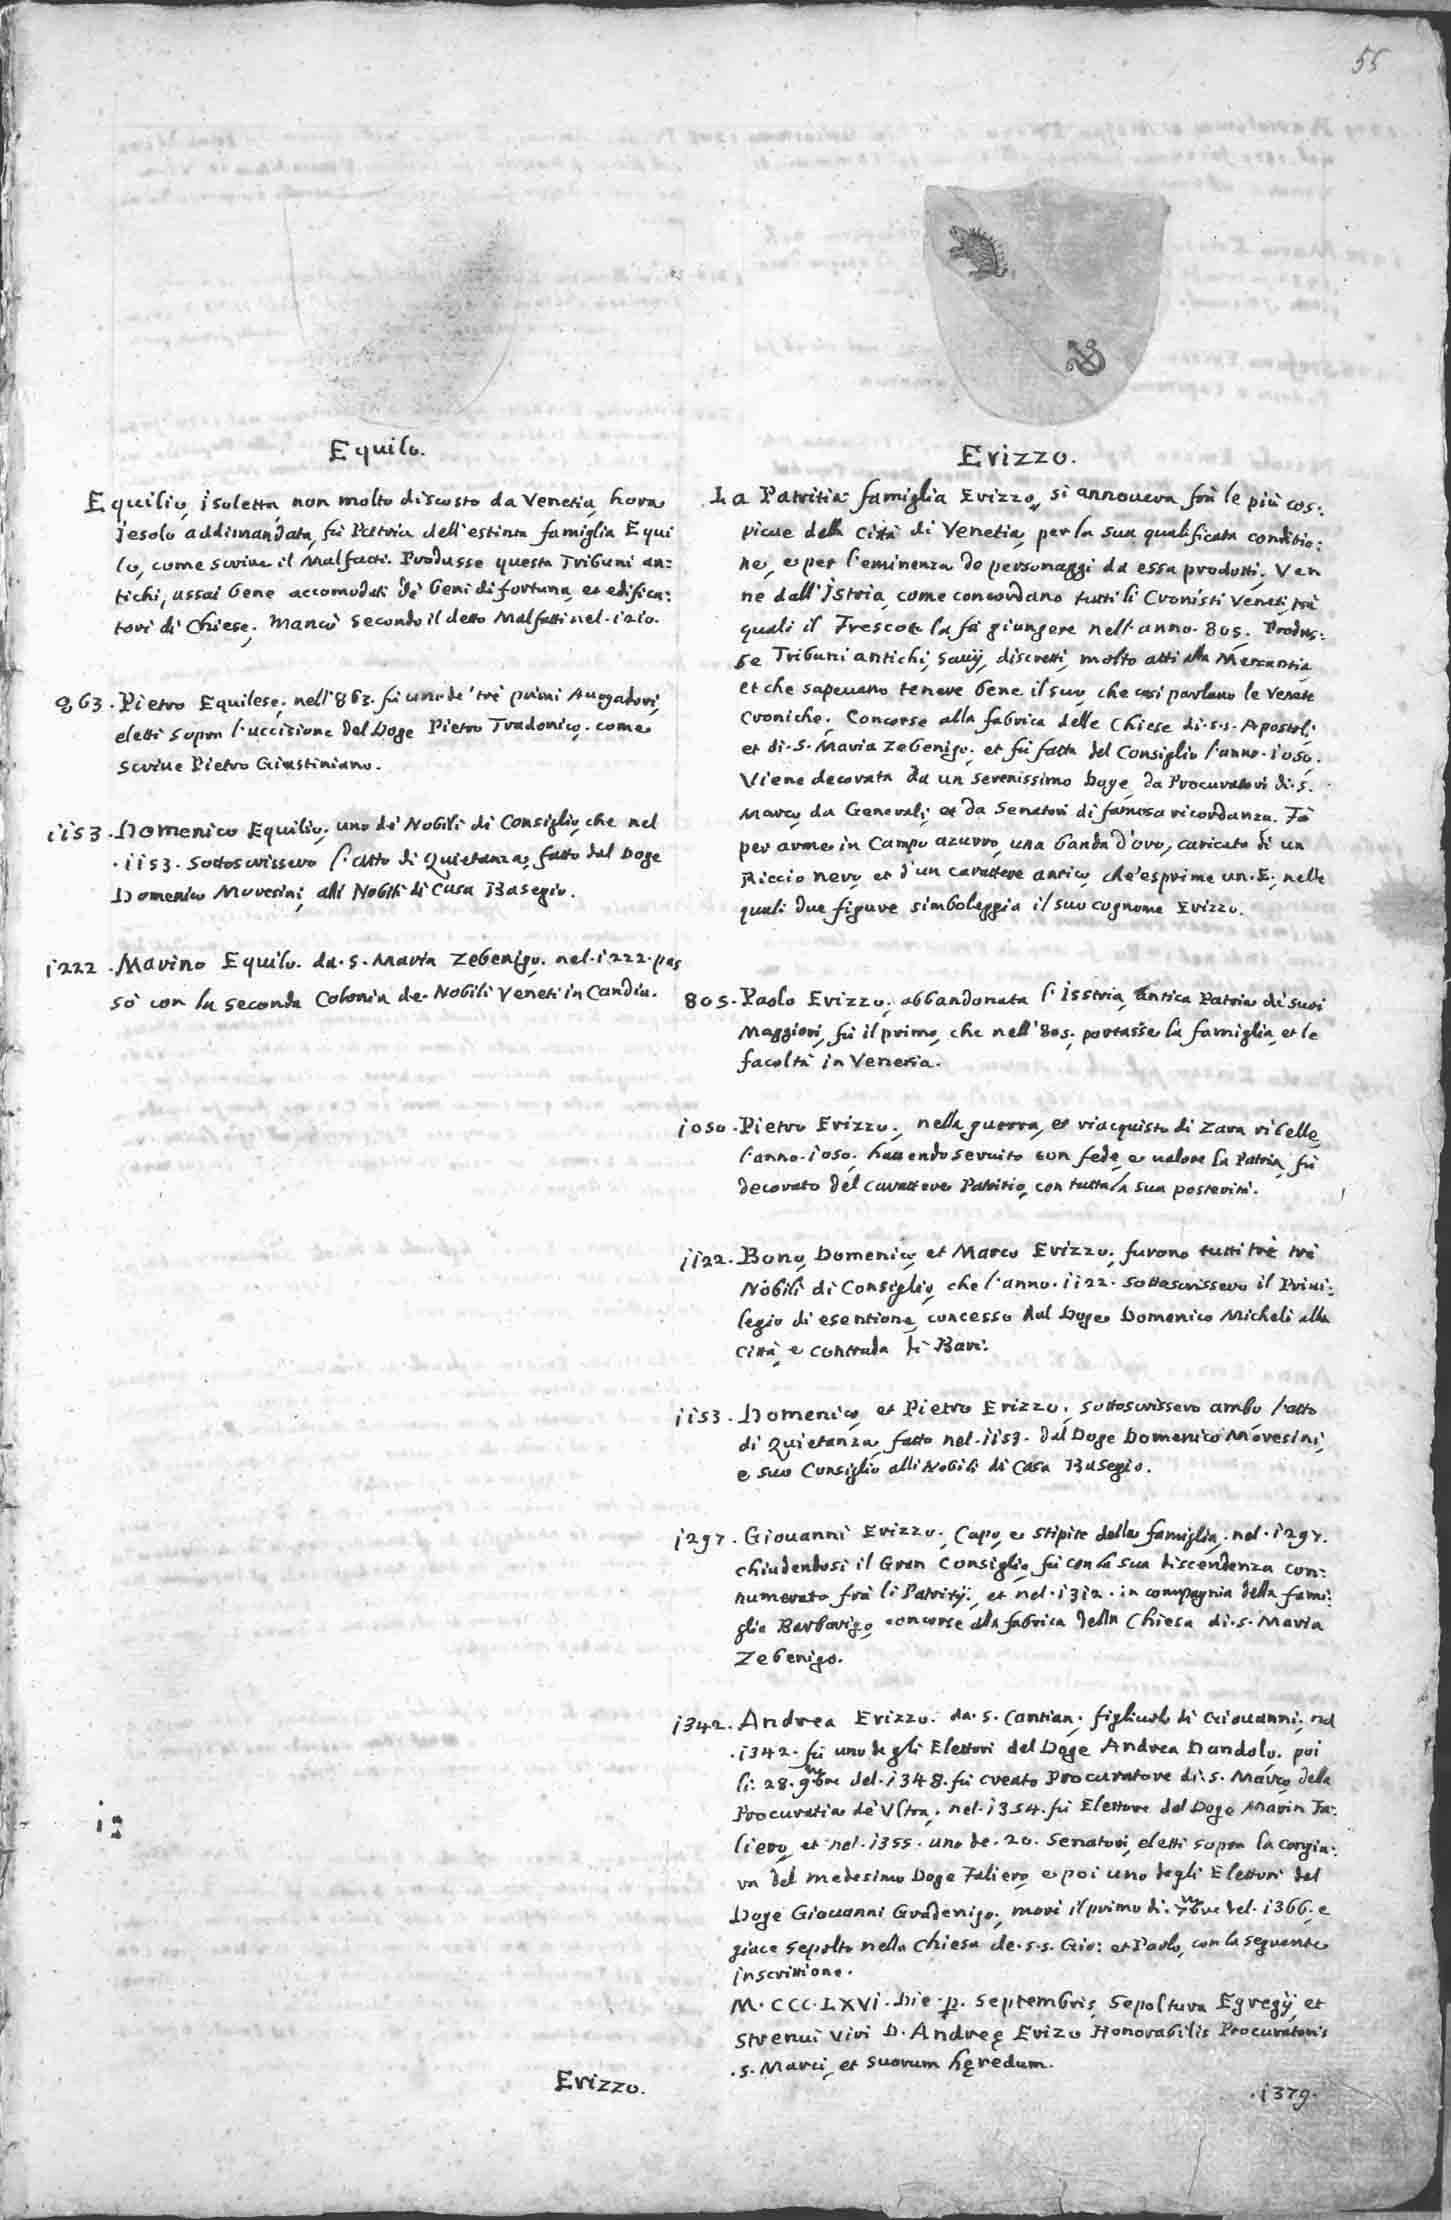 55
Equilo.
Equilio, isoletta, non molto discosto da Venetia, hora
Jesolo addimandata, fù Patria dell'estinta famiglia Equi
lo, come scriue il Malfatti. Produsse questa Tribuni an:
tichi, assai bene accomodati dè beni di fortuna, et edifica:
tori di Chiese; mancò secondo il detto Malfatti nel. i2io.
863. Pietro Equilese, nell'863. fù uno de' trè primi Auogadori,
eletti sopra l'uccisione del Doge Pietro Tradonico. come
scriue Pietro Giustiniano.
ii53. Domenico Equilio, uno dè Nobili di Consiglio, che nel
.ii53. sottoscrissero l'atto di Quietanza, fatto dal Doge
Domenico Moresini, alli Nobili di Casa Basegio.
i222. Marino Equilo. da. S. Maria Zebenigo. nel. i222. pas
sò con la seconda Colonia de Nobili Veneti in Candia.
Erizzo.
Erizzo.
La Patritia famiglia Erizzo, si annouera frà le più cos:
picue della Città di Venetia, per la sua qualificata conditio:
ne, e per l'eminenza de personaggi da essa prodotti. Ven
ne dall'Istria, come concordano tutti li Cronisti Veneti, trà
quali il Frescot la fà giungere nell'anno. 805. Produs:
se Tribuni antichi, sauij, discretti, molto atti alla Mercantia,
et che sapeuano tenere bene il suo, che così parlano le Venete
Croniche. Concorse alla fabrica delle Chiese di. S.S. Apostoli,
et di. S. Maria Zebenigo. et fù fatta del Consiglio l'anno. i050.
Viene decorata da un Serenissimo Doge, da Procuratori di. S.
Marco, da Generali, et da Senatori di famosa ricordanza. Fà
per arme in Campo azurro, una banda d'oro, caricata di un
Riccio nero, et d'un carattere antico, che esprime un. E, nelle
quali due figure simboleggia il suo cognome Erizzo.
805. Paolo Erizzo, abbandonata l'Isstria, antica Patria dè suoi
Maggiori, fù il primo, che nell'805. portasse la famiglia, et le
facoltà in Venetia.
i050. Pietro Erizzo, nella guerra, et riacquisto di Zara ribelle,
l'anno. i050. hauendo seruito con fede, e ualore la Patria, fù
decorato del carattere Patritio, con tutta la sua posterità.
ii22. Bono, Domenico, et Marco Erizzo, furono tutti trè trè
Nobili di Consiglio, che l'anno. ii22. sottoscrissero il Priui:
legio di esentione, concesso dal Doge Domenico Micheli alla
Città, e contrada di Bari.
ii53. Domenico, et Pietro Erizzo, sottoscrissero ambo l'atto
di Quietanza, fatto nel. ii53. dal Doge Domenico Moresini,
e suo Consiglio alli Nobili di Casa Basegio.
i297. Giouanni Erizzo, Capo, e stipite della famiglia. nel. i297.
chiudendosi il Gran Consiglio, fù con la sua discendenza con:
numerato frà li Patritij, et nel. i3i2. in compagnia della fami:
glia Barbarigo, concorse alla fabrica della Chiesa di. S. Maria
Zebenigo.
i342. Andrea Erizzo. da. S. Cantian, figliuolo di Giouanni, nel
.i342. fù uno degli Elettori del Doge Andrea Dandolo. poi
li: 28. 9bre del. i348. fù creato Procuratore di. S. Marco, della
Procuratia dè Vltra. nel. i354. fù Elettore del Doge Marin Fa:
liero, et nel. i355. uno de. 20. Senatori, eletti sopra la congiu:
ra del medesimo Doge Faliero, e poi uno degli Elettori del
Doge Giouanni Gradenigo, morì il primo di. 7bre del. i366. e
giace sepolto nella Chiesa de. S.S. Gio: et Paolo, con la seguente
inscrittione.
M. CCC. LXVI. Die. p. Septembris, Sepoltura Egregij, et
strenui viri D. Andreę Erizo Honorabilis Procuratoris
.S. Marci, et suorum hęredum.
.i379.